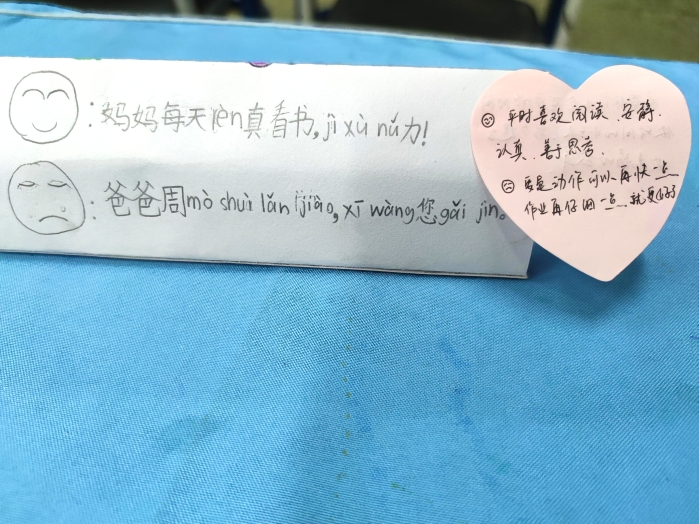 ：妈妈每天rèn真看书，jì xù nǔ力！
：爸爸周mò shuì lǎn jiào，xī wàng您gǎi jìn。
平时喜欢阅读、安静、
认真、善于思考、
要是动作可以再快一点
作业再仔细一点，就更好了